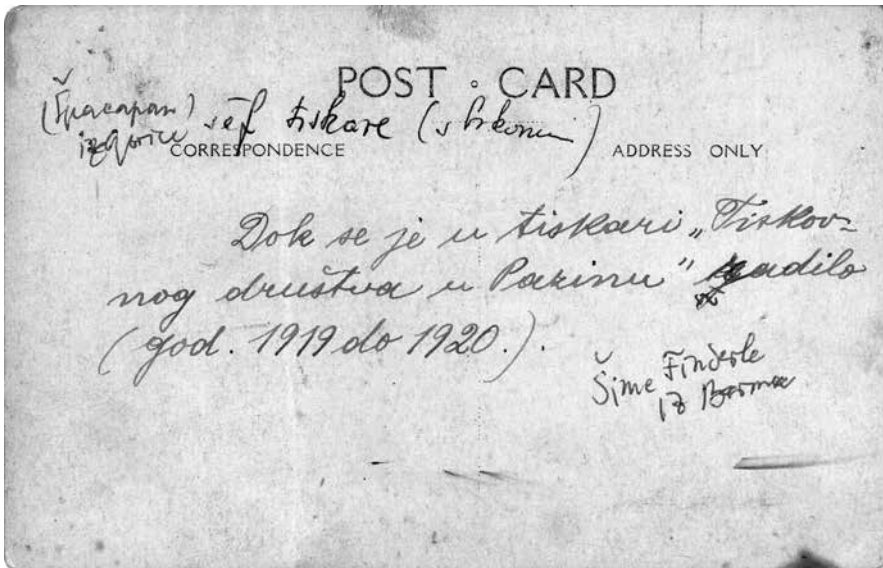 POST CARD
(Špacapan) šef tiskare (s brkovima)
iz Gorice
CORRESPONDENCE
ADDRESS ONLY
Dok se je u tiskari „Tiskov=
nog društva u Pazinu" radilo
(god. 1919 do 1920.).
Šime Finderle
iz